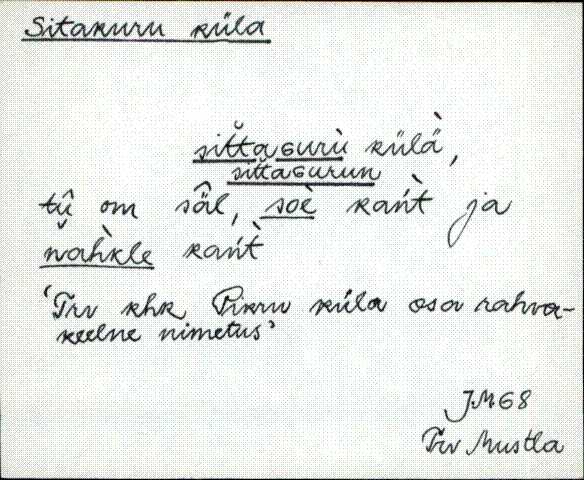 Sitakuru küla
sit̆taɢurù külä̀,
sit̆taɢurun
tŭ̂ om sä̂l, soè kańt̀ ja
nahkle kańt̀
'Trv khk Pikru küla osa rahva-
keelne nimetus'
JM68
Trv Mustla